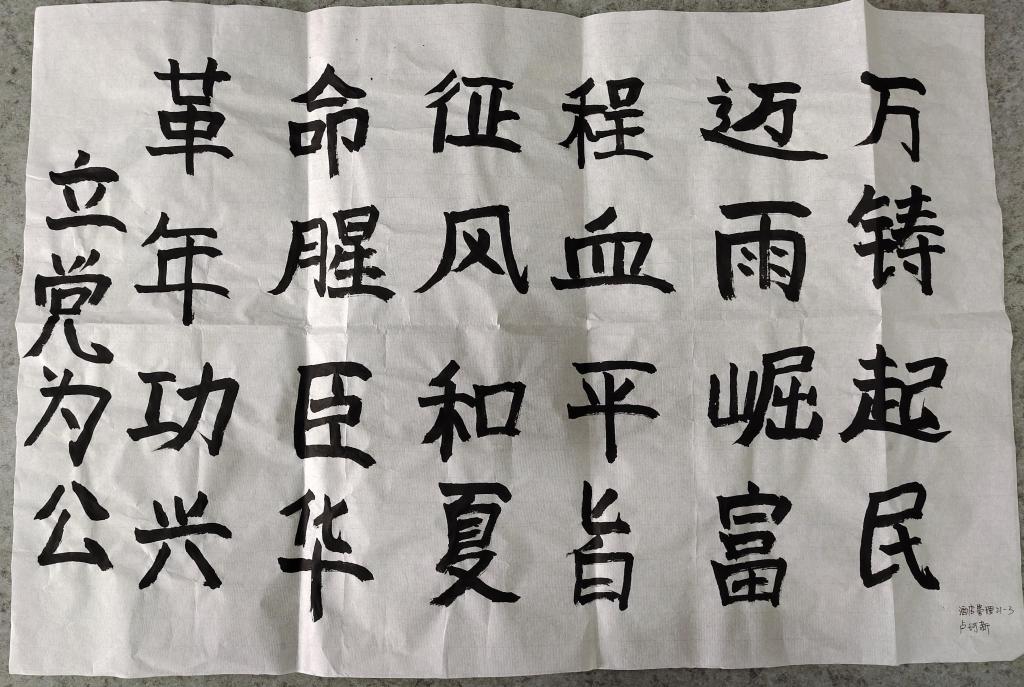 革命征程迈万
年腥风血雨铸
功臣和平崛起
兴华夏旨富民
立党为公
酒店管理21-3